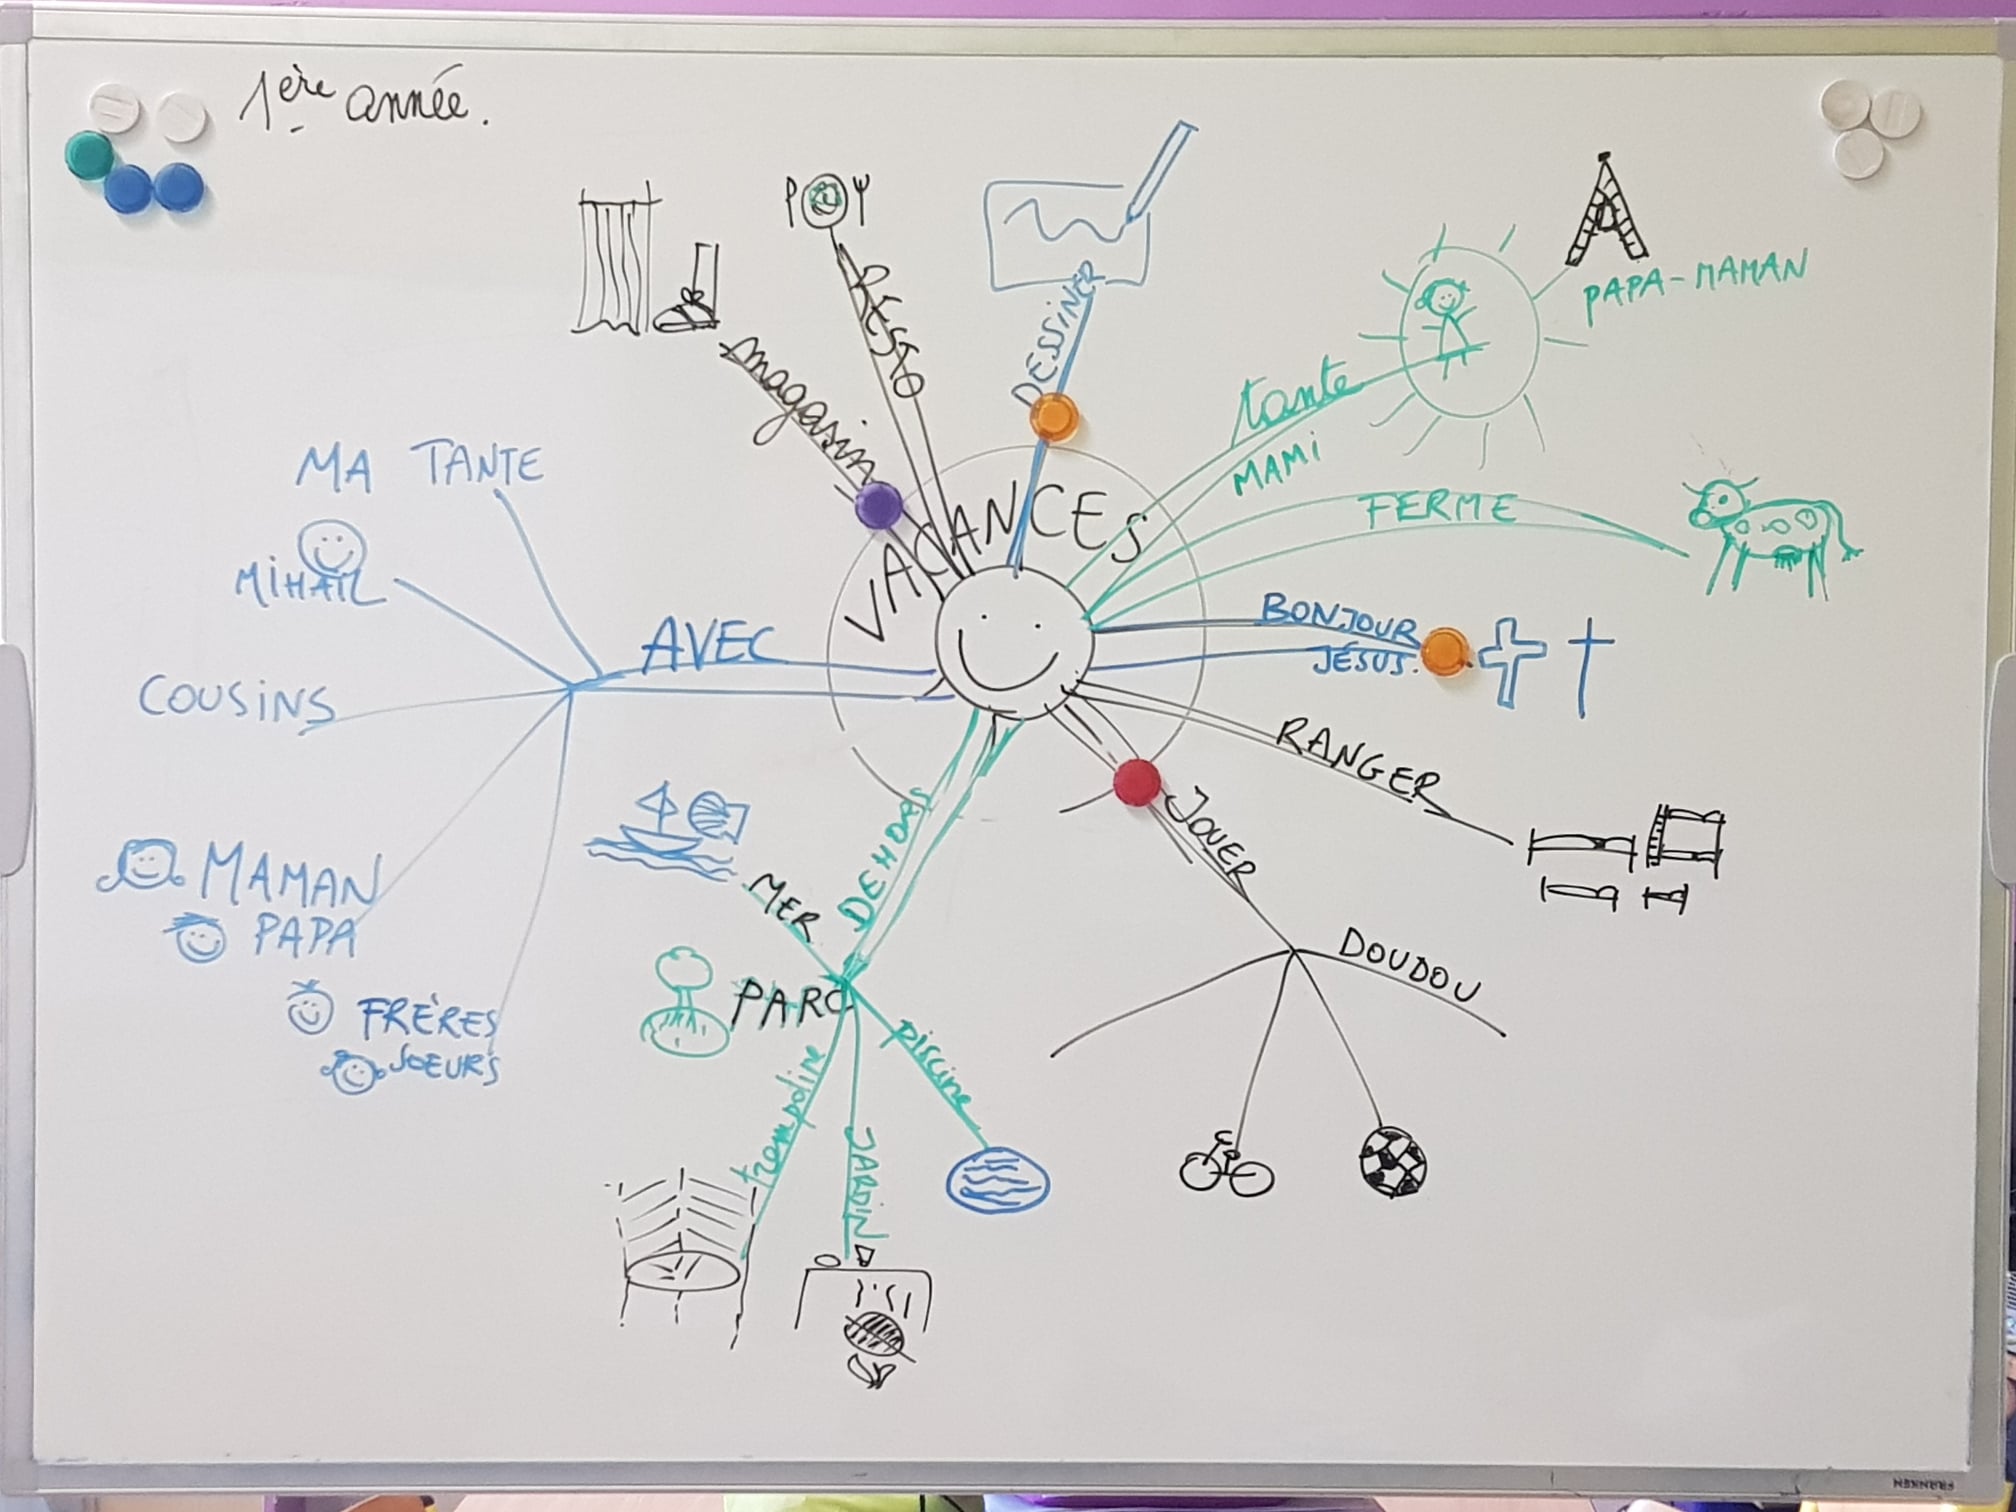 1ère année.
RÉSTO
DESSINER
magasin
PAPA-MAMAN
tante
MAMI
VACANCES
FERME
MA TANTE
MIHAIL
AVEC
BONJOUR
JÉSUS.
COUSINS
RANGER
JOUER
DEHORS
MER
MAMAN
PAPA
PARC
DOUDOU
FRÈRES
SOEURS
piscine
trempoline
JARDIN
FRANKEN